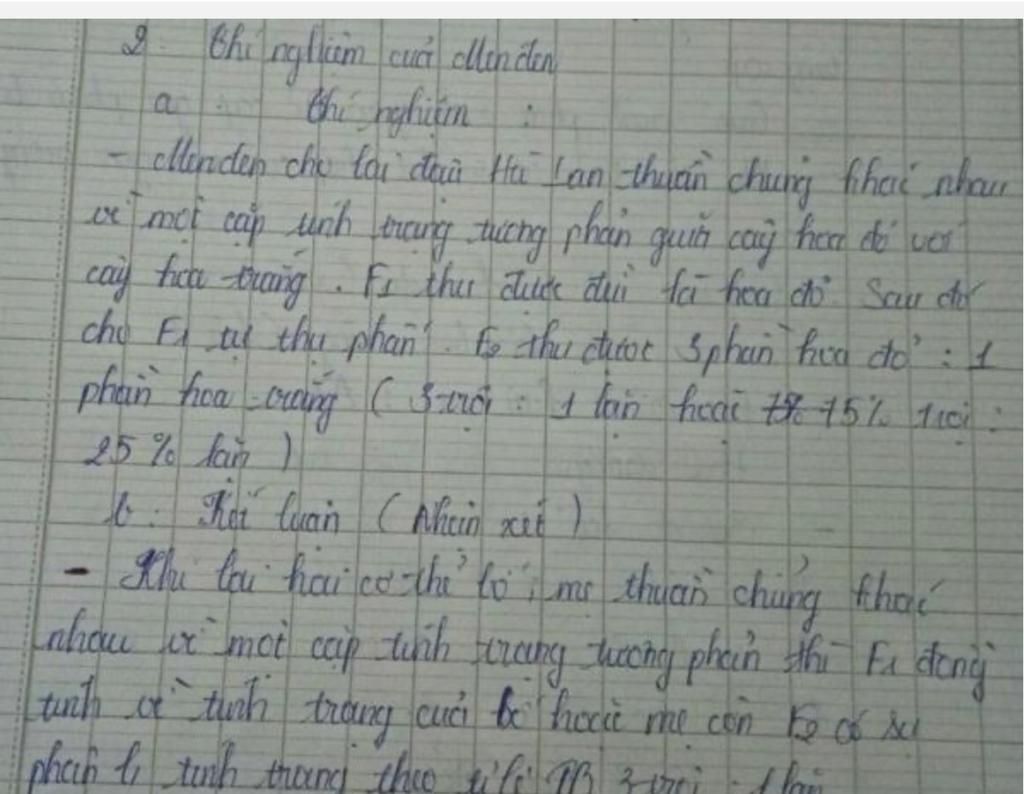 2. Thí nghiệm của Menđen
a. Thí nghiệm :
- Menđen cho lai đậu Hà Lan thuần chủng khác nhau
về một cặp tính trạng tương phản giữa cây hoa đỏ với
cây hoa trắng. F1 thu được đều là hoa đỏ Sau đó
cho F1 tự thụ phấn. F2 thu được 3 phần hoa đỏ : 1
phần hoa trắng ( 3 trội : 1 lặn hoặc 75% trội :
25% lặn )
b. Kết luận ( Nhận xét )
- Khi lai hai cơ thể bố, mẹ thuần chủng khác
nhau về một cặp tính trạng tương phản thì F1 đồng
tính về tính trạng của bố hoặc mẹ còn F2 có sự
phân li tính trạng theo tỉ lệ TB 3 trội : 1 lặn